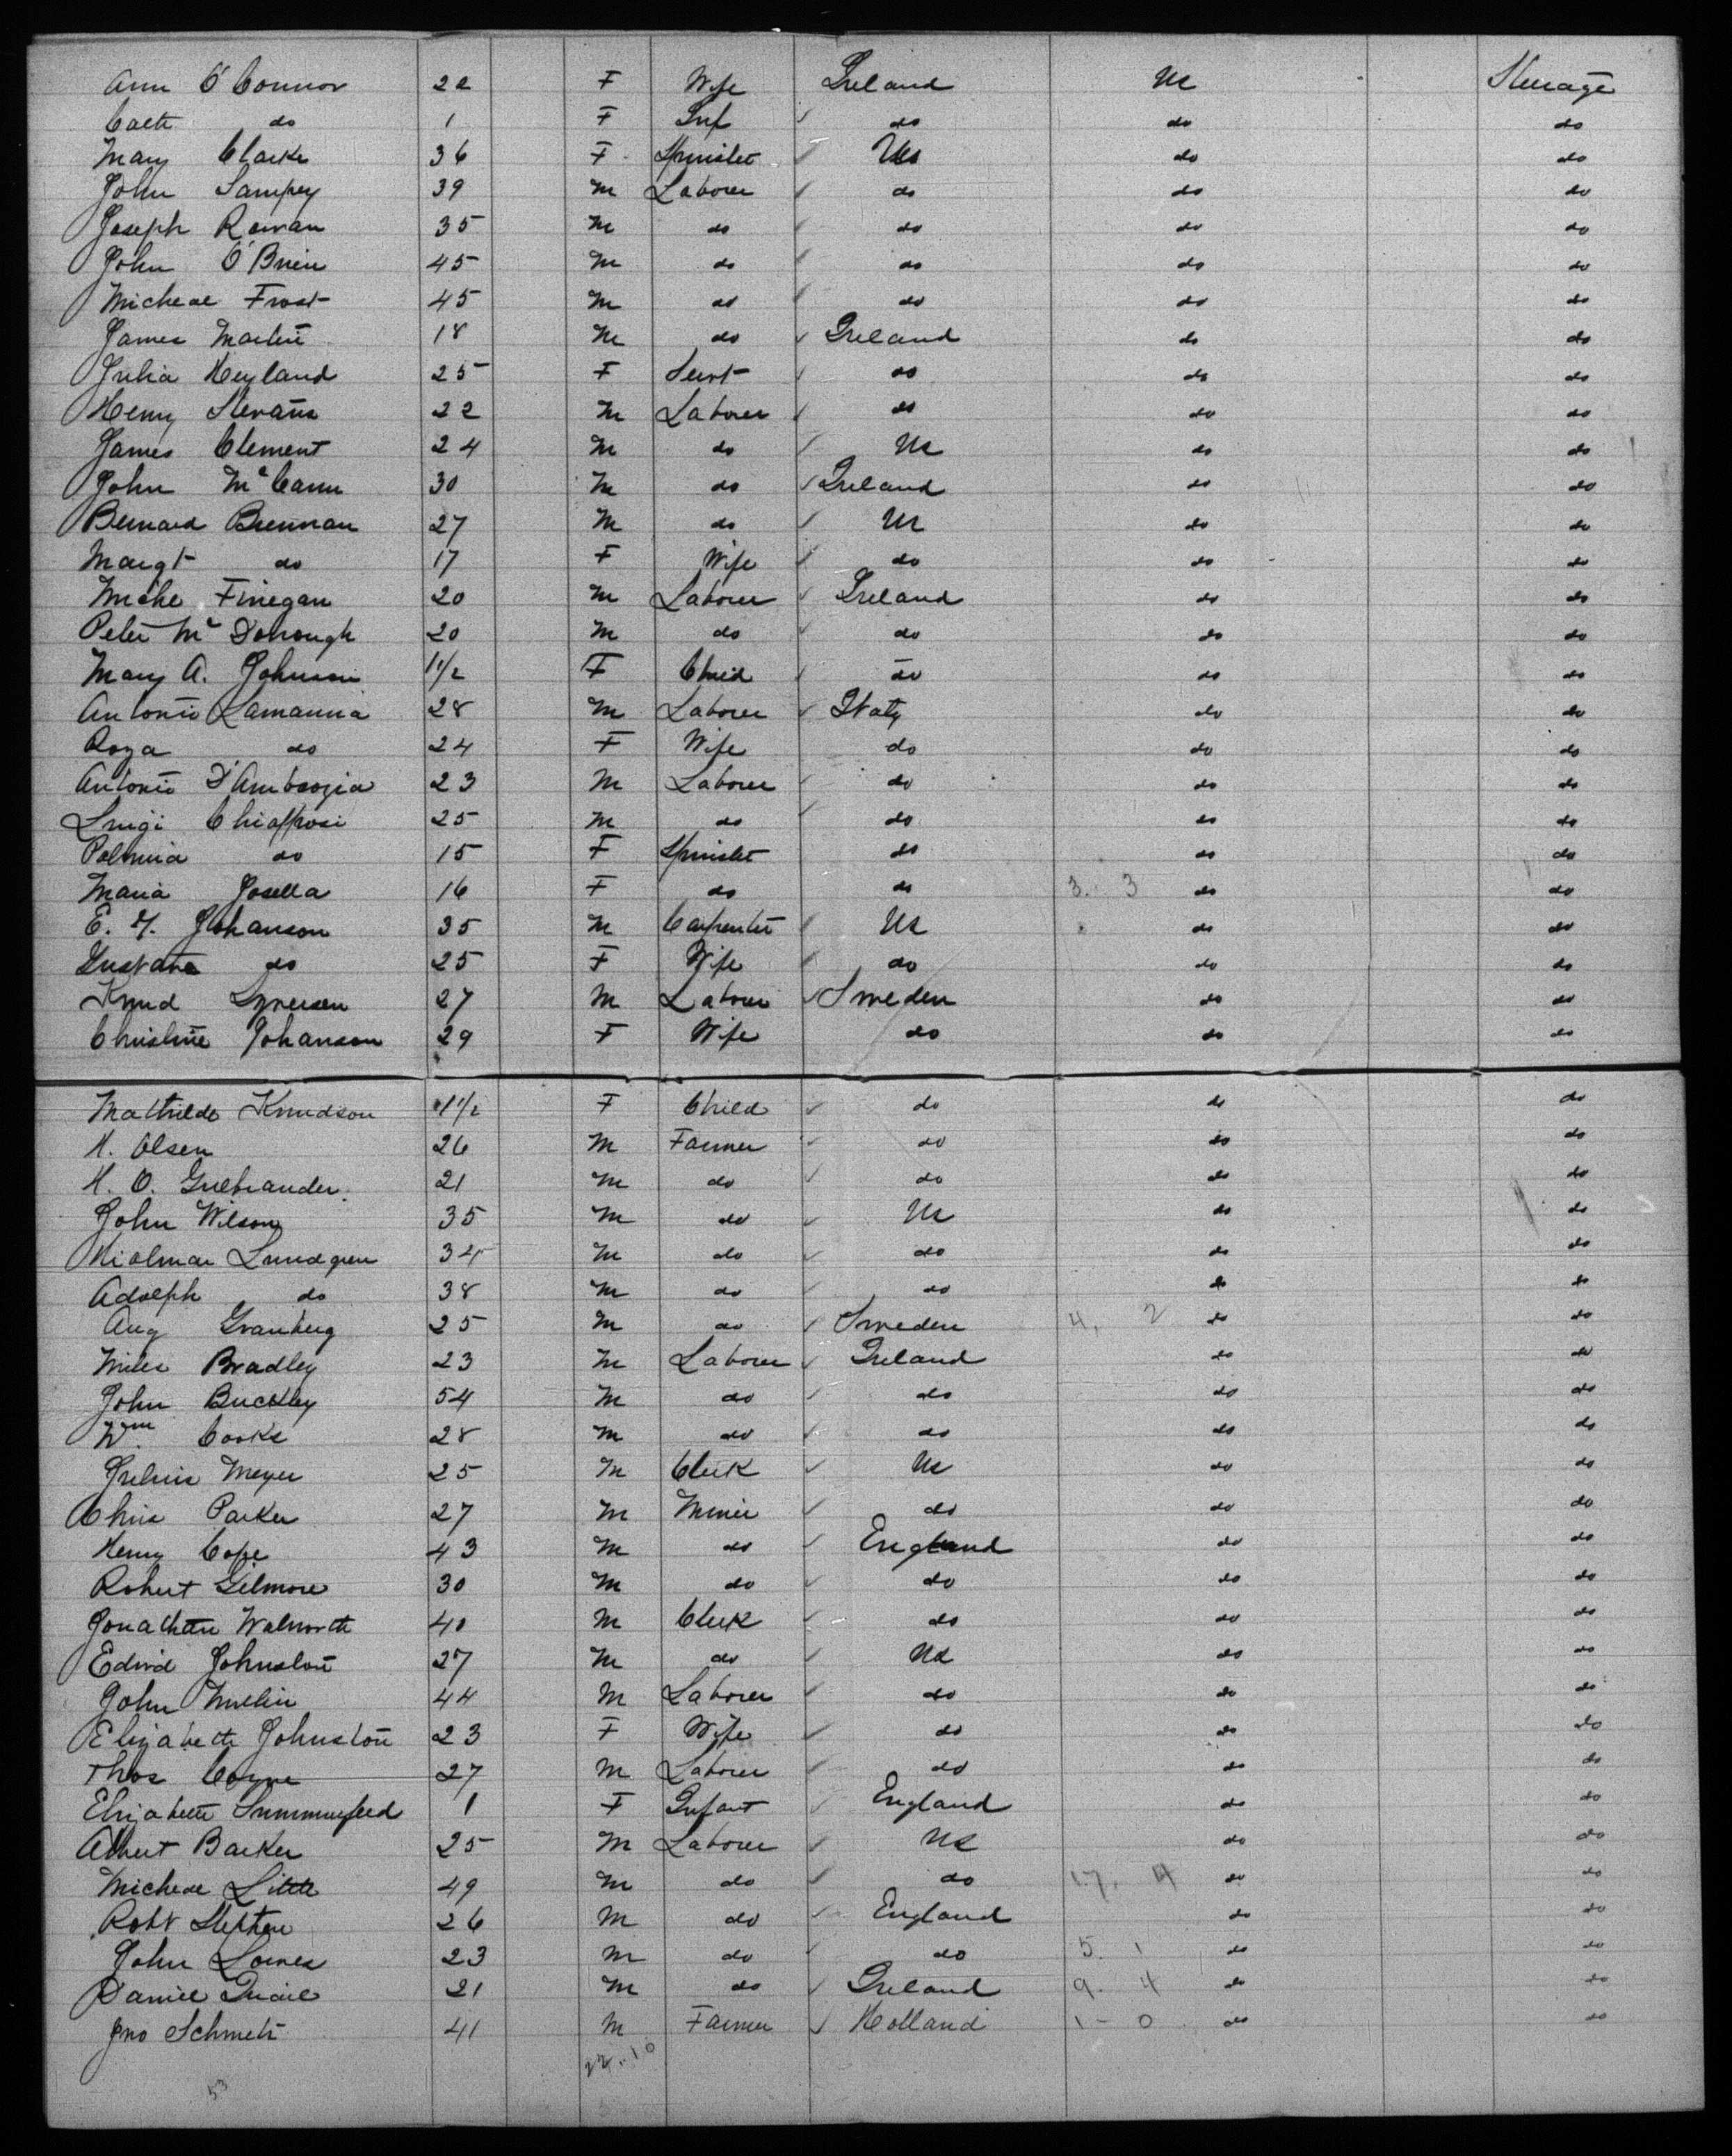 Ann O'Connor 22 F Wife Ireland US Steerage
Cath do 1 F Inf do do do
Mary Clarke 36 F Spinster US do do
John Sampey 39 M Laborer do do do
Joseph Rowan 35 M do do do do
John O'Brien 45 M do do do do
Micheal Frost 45 M do do do do
James Martin 18 M do Ireland do do
Julia Heyland 25 F Servt do do do
Henry Stevans 22 M Laborer do do do
James Clement 24 M do US do do
John McCann 30 M do Ireland do do
Bernard Brennan 27 M do US do do
Margt do 17 F Wife do do do
Miche Finegan 20 M Laborer Ireland do do
Peter McDonough 20 M do do do do
Mary A. Johnson 1 1/2 F Child do do do
Antonio Lamanna 28 M Laborer Italy do do
Roza do 24 F Wife do do do
Antonio D'Ambrogia 23 M Laborer do do do
Luigi Chiapposi 25 M do do do do
Polmnia do 15 F Spinster do do do
Maria Josella 16 F do do 3. 3 do do
E. Y. Johanson 35 M Carpenter US do do
Gustava do 25 F Wife do do do
Knud Syversen 27 M Laborer Sweden do do
Christine Johanson 29 F Wife do do do
Mathilde Knudson 11/2 F Child do do do
H. Olsen 26 M Farmer do do do
H. O. Gulbrander. 21 M do do do do
John Wilson 35 M do US do do
Hialmar Lundgren 34 M do do do do
Adolph do 38 M do do do do
Aug Granberg 25 M do Sweden 4. 2 do do
Miles Bradley 23 M Laborer Ireland do do
John Buckley 54 M do do do do
Wm. Cooke 28 M do do do do
Julius Meyer 25 M Clerk US do do
Chris Parker 27 M Miner do do do
Henry Cope 43 M do England do do
Robert Gilmore 30 M do do do do
Jonathan Walworth 40 M Clerk do do do
Edwd Johnston 27 M do US do do
John Mullin 44 M Laborer do do do
Elizabeth Johnston 23 F Wife do do do
Thos Coyne 27 M Laborer do do do
Elizabeth Summerfeed 1 F Infant England do do
Albert Barker 25 M Laborer US do do
Micheal Little 49 M do do 17. 4 do do
Robt Stephen 26 M do England do do
John Lomes 23 M do do 5. 1 do do
Daniel Quail 21 M do Ireland 9. 4 do do
Jno Schmetz 41 M Farmer Holland 1 - 0 do do
22.10
53